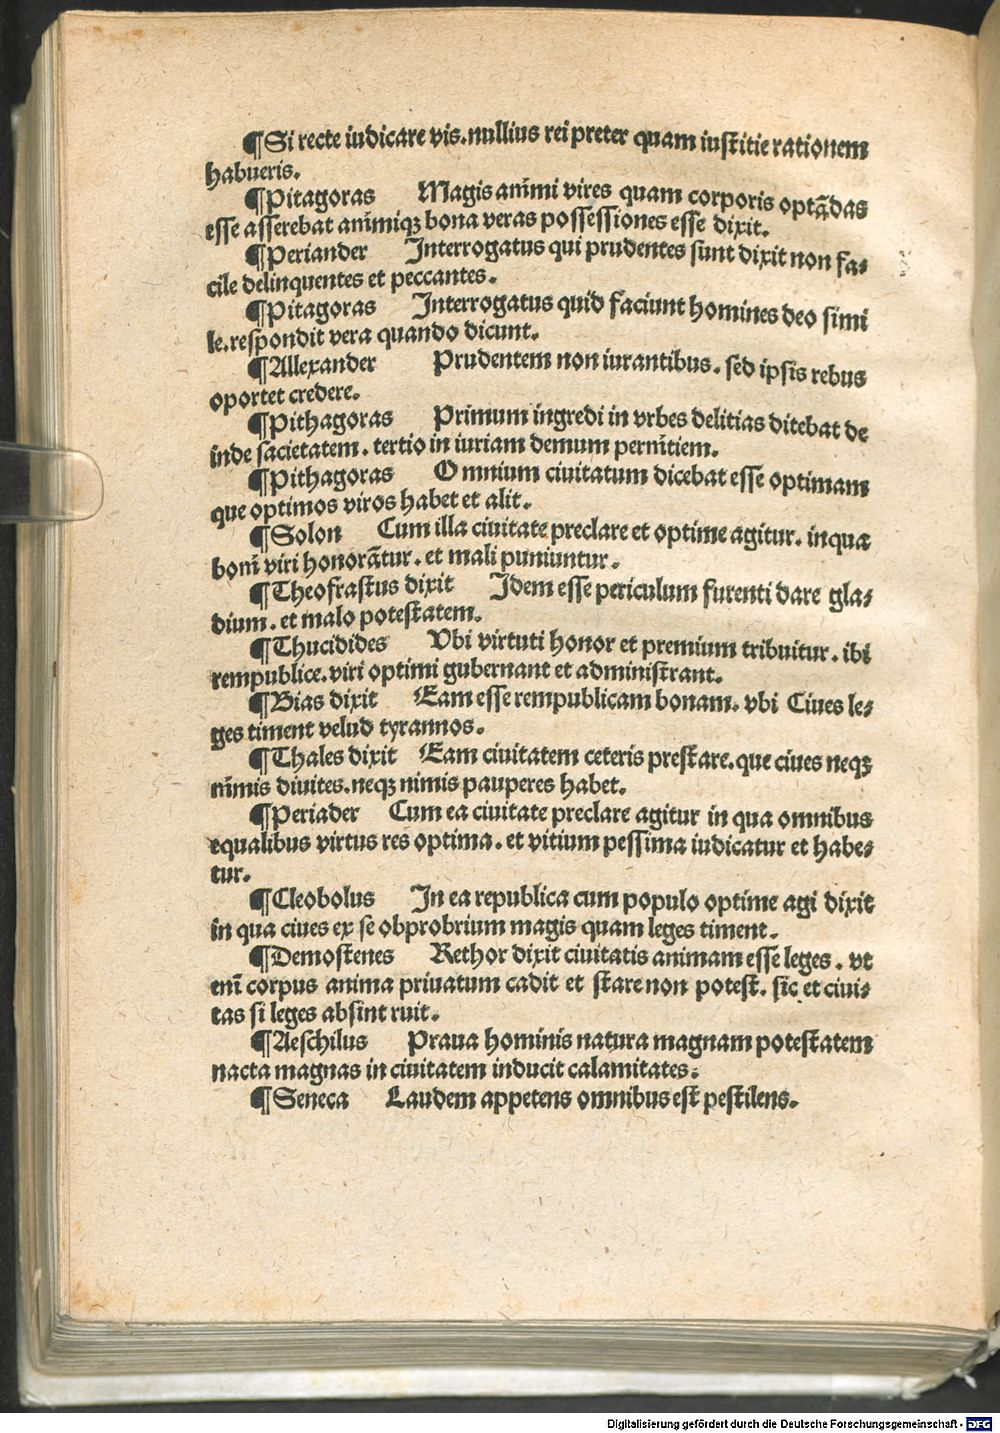 ¶Si recte iudicare vis.nullius rei preter quam iustitie rationem
habueris.
¶Pitagoras Magis animi vires quam corporis optādas
esse asserebat animiqꝫ bona veras possessiones esse dixit.
¶Periander Interrogatus qui prudentes sunt dixit non fa⸗
cile delinquentes et peccantes.
¶Pitagoras Interrogatus quid faciunt homines deo simi
le.respondit vera quando dicunt.
¶Allexander Prudentem non iurantibus. sed ipsis rebus
oportet credere.
¶Pithagoras Primum ingredi in vrbes delitias ditebat de
inde sacietatem. tertio in iuriam demum perniētiem.
¶Pithagoras Omnium ciuitatum dicebat esse optimam
que optimos viros habet et alit.
¶Solon Cum illa ciuitate preclare et optime agitur. inqua
boni viri honorātur. et mali puniuntur.
¶Theofrastus dixit Idem esse periculum furenti dare gla⸗
dium. et malo potestatem.
¶Thucidides Vbi virtuti honor et premium tribuitur. ibi
rempublice.viri optimi gubernant et administrant.
¶Bias dixit Eam esse rempublicam bonam. vbi Ciues le⸗
ges timent velud tyrannos.
¶Thales dixit Eam ciuitatem ceteris prestare.que ciues neqꝫ
nimis diuites.neqꝫ nimis pauperes habet.
¶Periader Cum ea ciuitate preclare agitur in qua omnibus
equalibus virtus res optima. et vitium pessima iudicatur et habe⸗
tur.
¶Cleobolus In ea republica cum populo optime agi dixit
in qua ciues ex se obprobrium magis quam leges timent.
¶Demostenes Rethor dixit ciuitatis animam esse leges. vt
eni corpus anima priuatum cadit et stare non potest. sic et ciui⸗
tas si leges absint ruit.
¶Aeschilus Praua hominis natura magnam potestatem
nacta magnas in ciuitatem inducit calamitates.
¶Seneca Laudem appetens omnibus est pestilens.
Digitalisierung gefördert durch die Deutsche Forschungsgemeinschaft - DFG